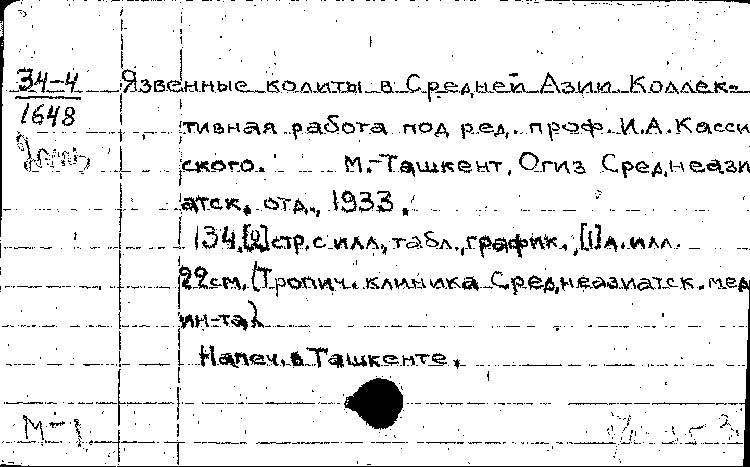 34-4
1648
Язвенные колиты в Средней Азии. Коллек-
тивная работа под ред. проф. И.А. Касси
ского. М.-Ташкент, Огиз Среднеази
атск. отд., 1933.
134,[2]стр. с илл., табл., график., [1]л. илл.
22см. (Тропич. клиника Среднеазиатск. мед
ин-та)
Напеч. в Ташкенте.
М-1